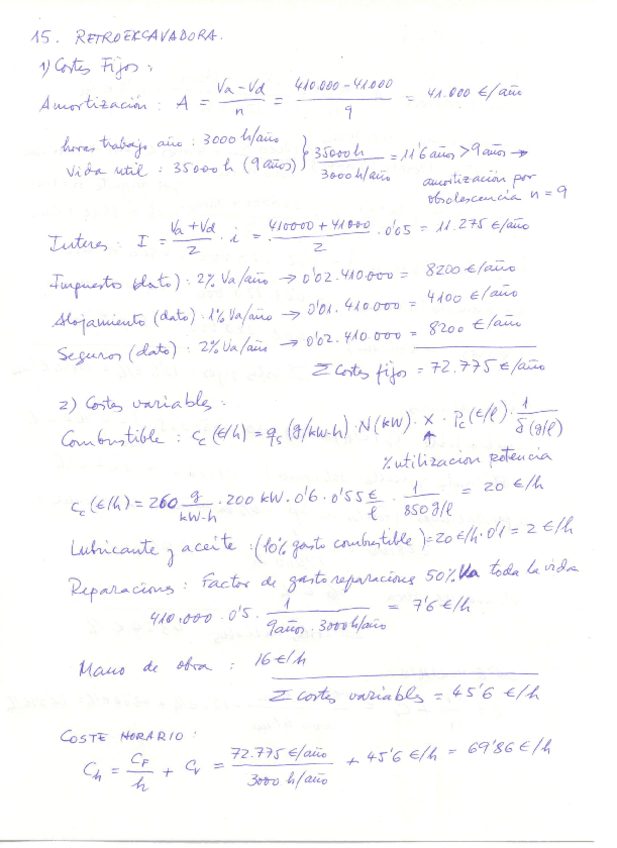 15. RETROEXCAVADORA.
1) Costes Fijos:
Amortización: A = (Va - Vd)/n = (410.000 - 41.000)/9 = 41.000 €/año
horas trabajo año: 3000 h/año
Vida util: 35000 h (9 años) } 35000 h / 3000 h/año = 11'6 años > 9 años →
amortización por
obsolescencia n = 9
Interes: I = (Va + Vd)/2 · i = (410000 + 41000)/2 · 0'05 = 11.275 €/año
Impuestos (dato): 2% Va/año → 0'02 · 410.000 = 8200 €/año
Alojamiento (dato): 1% Va/año → 0'01 · 410.000 = 4100 €/año
Seguros (dato): 2% Va/año → 0'02 · 410 000 = 8200 €/año
Σ Costes fijos = 72.775 €/año
2) Costes variables:
Combustible: cc (€/h) = qs (g/kW·h) · N (kW) · x · Pc (€/l) · 1/δ (g/l)
% utilizacion potencia
cc (€/h) = 260 g/kW·h · 200 kW · 0'6 · 0'55 €/l · 1/850 g/l = 20 €/h
Lubricante y aceite: (10% gasto combustible) = 20 €/h · 0'1 = 2 €/h
Reparaciones: Factor de gasto reparaciones 50% Va toda la vida
410.000 · 0'5 · 1/(9 años · 3000 h/año) = 7'6 €/h
Mano de obra: 16 €/h
Σ costes variables = 45'6 €/h
COSTE HORARIO:
Ch = CF/h + Cv = 72.775 €/año / 3000 h/año + 45'6 €/h = 69'86 €/h